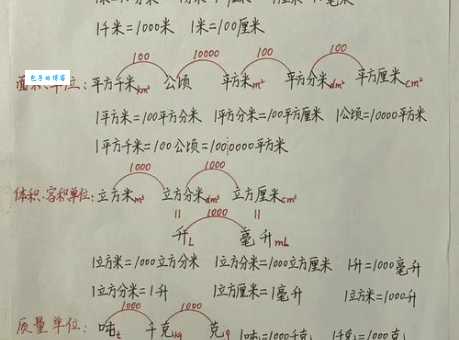 1千米=1000米 1米=100厘米
包子的博客
100 10000 100 100
面积单位:平方千米km² 公顷 平方米m² 平方分米dm² 平方厘米cm²
1平方米=100平方分米 1平方分米=100平方厘米 1公顷=10000平方米
1平方千米=100公顷=1000000平方米
1000 1000
体积.容积单位:立方米m³ 立方分米dm³ 立方厘米cm³
॥ 1000 ॥
升L 毫升mL
1立方米=1000立方分米 1立方分米=1000立方厘米 1升=1000毫升
1立方分米=1升 1立方厘米=1毫升 1立方米=1000升
1000 1000
质量单位:吨t 千克kg 克g 1吨=1000千克 1千克=1000克